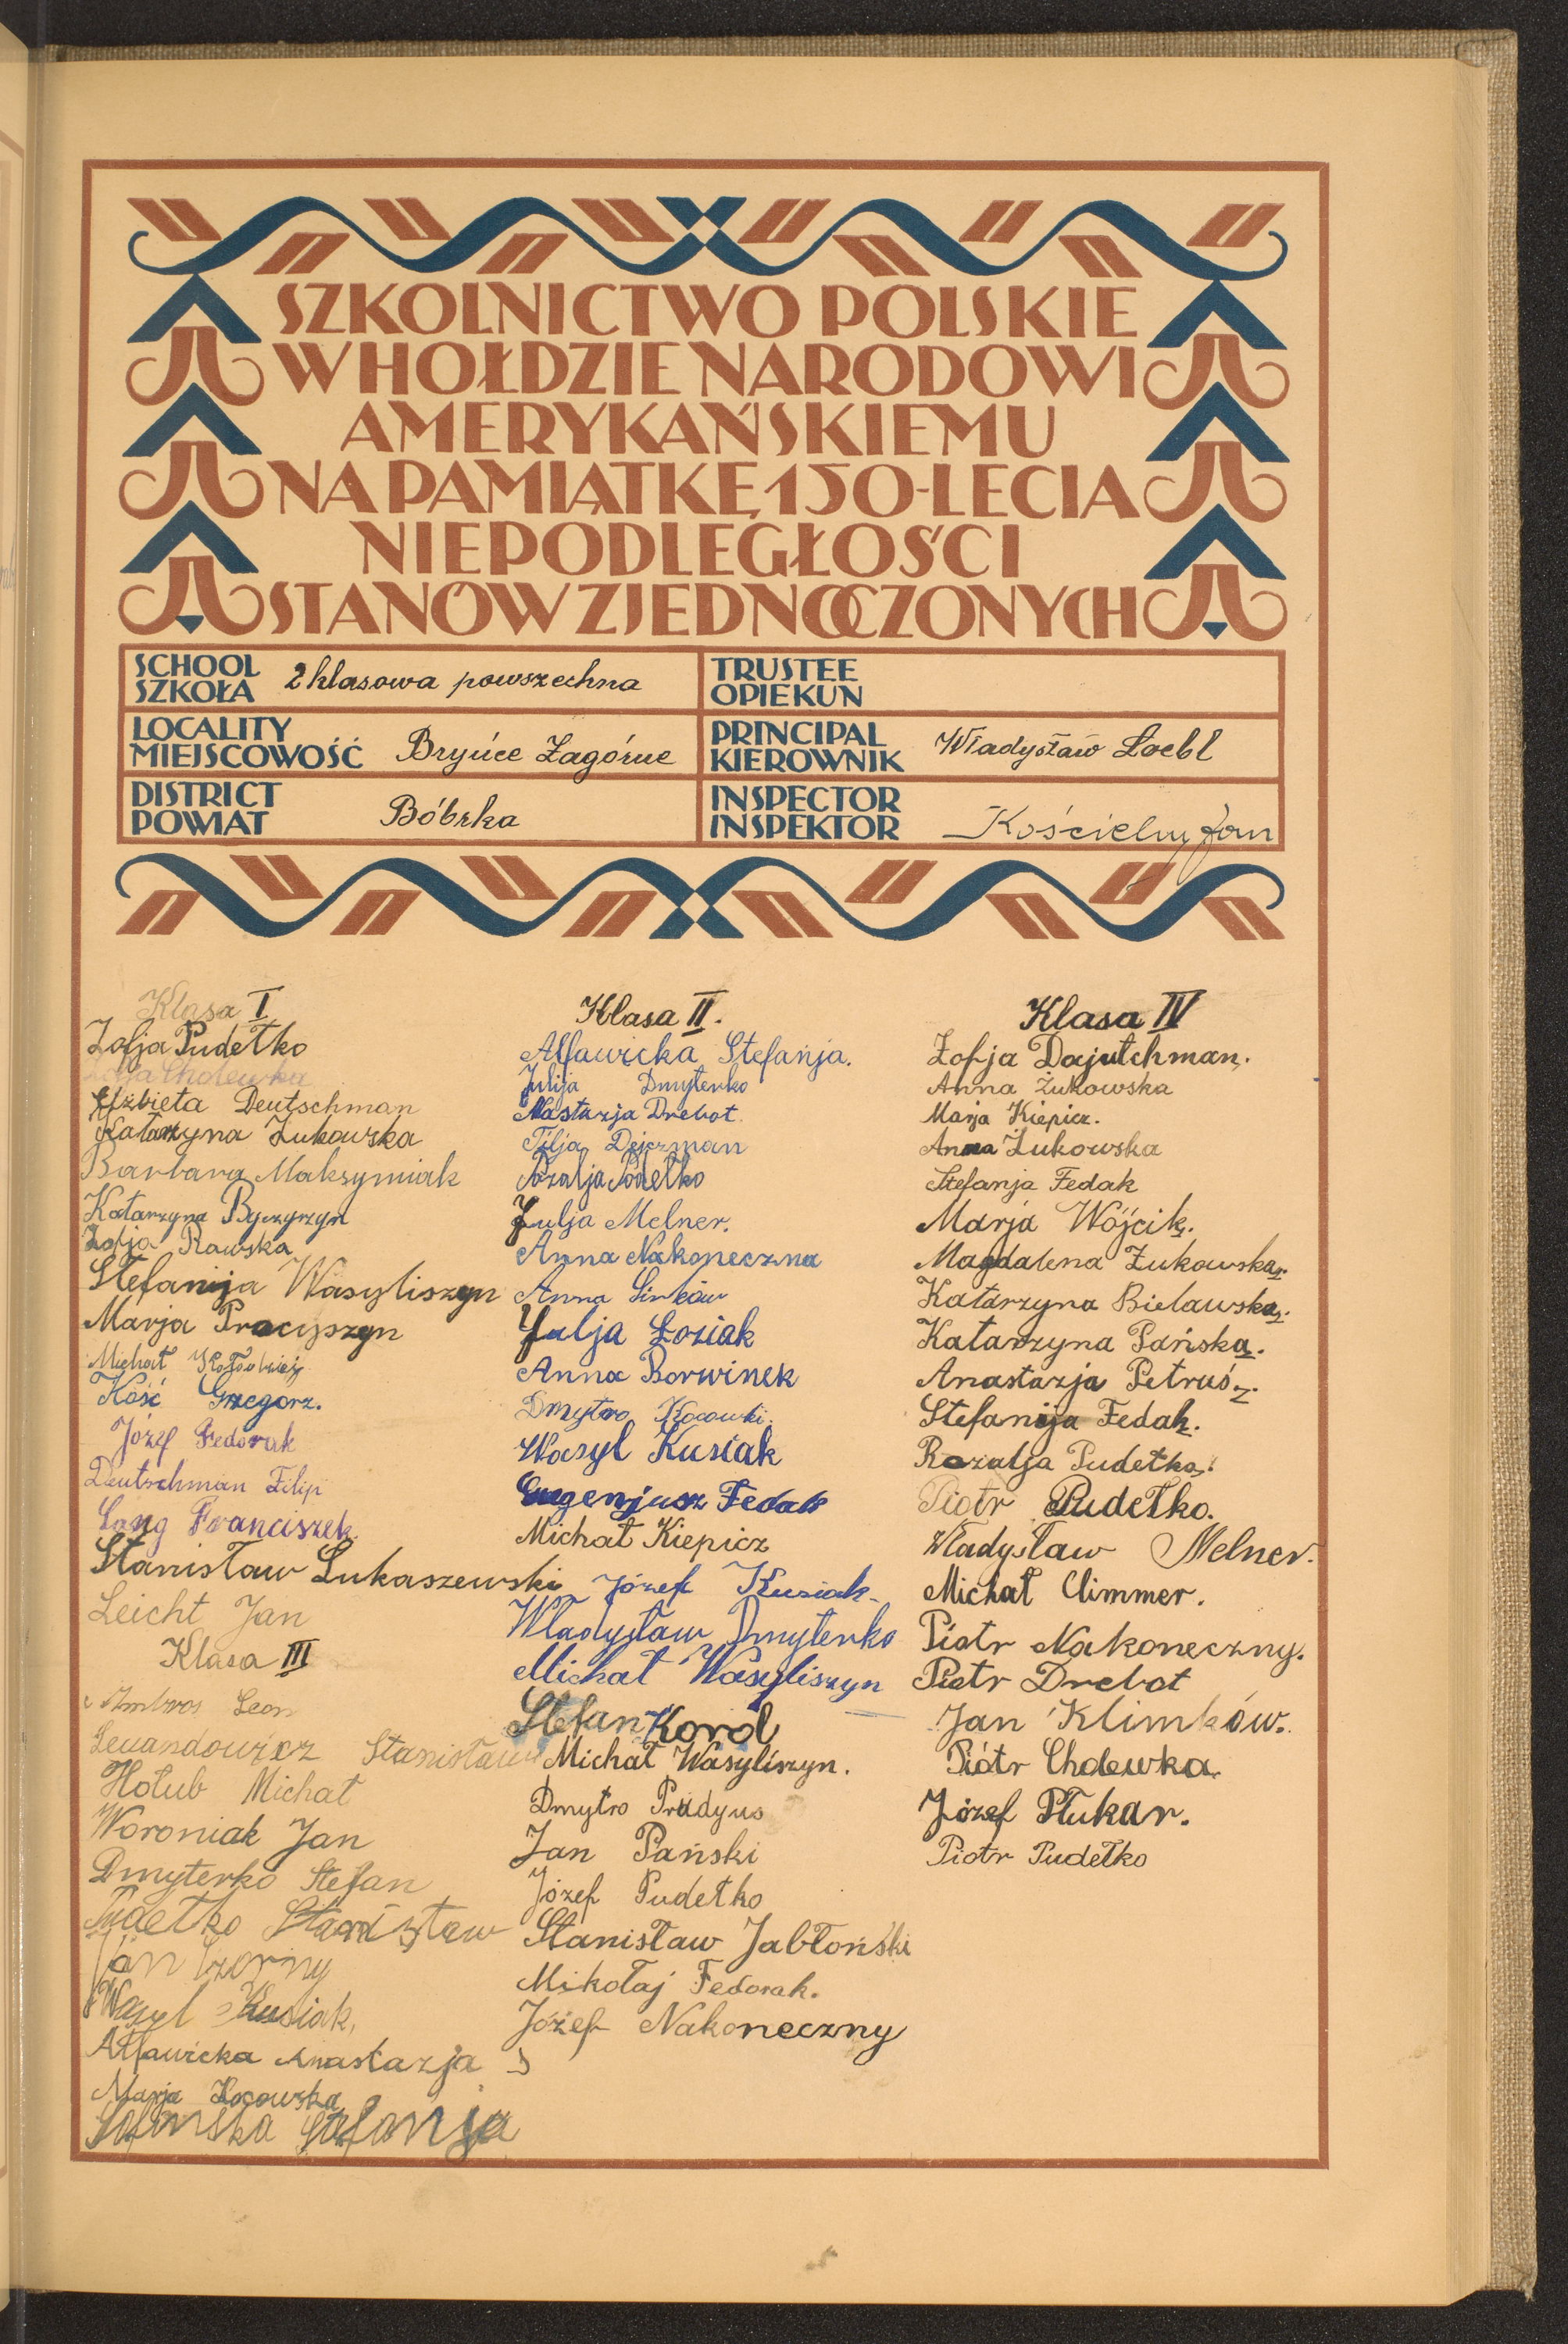 SZKOLNICTWO POLSKIE
W HOŁDZIE NARODOWI
AMERYKAŃSKIEMU
NA PAMIĄTKĘ 150-LECIA
NIEPODLEGŁOŚCI
STANÓW ZJEDNOCZONYCH
SCHOOL
SZKOŁA 2 klasowa powszechna
TRUSTEE
OPIEKUN
LOCALITY
MIEJSCOWOŚĆ Bryńce Zagórne
PRINCIPAL
KIEROWNIK Władysław Loebl
DISTRICT
POWIAT Bóbrka
INSPECTOR
INSPEKTOR Kościelny Jan
Klasa I
Zofja Pudełko
Zofja Cholewka
Elżbieta Deutschman
Katarzyna Żukowska
Barbara Maksymiak
Katarzyna Byczyrzyn
Zofja Rawska
Stefanija Wasyliszyn
Marja Procyszyn
Michał
Kość Grzegorz.
Józef Fedorak
Deutschman Filip
Lang Franciszek
Stanisław Łukaszewski
Leicht Jan
Klasa III
Ambros Leon
Lewandowicz Stanisław
Hołub Michał
Woroniak Jan
Dmyterko Stefan
Pudełko Stanisław
Jan Czorny
Wasyl Kusiak,
Ałfawicka Anastazja
Marja Kocowska
Stefanja
Klasa II.
Ałfawicka Stefanja.
Julija Dmyterko
Nastazja Drebot
Tilja Dejczman
Rozalja Pódełko
Julja Melner.
Anna Nakoneczna
Anna Sinków
Julja Łoziak
Anna Borwinek
Dmytro Kocowski.
Wasyl Kusiak
Eugenjusz Fedak
Michał Kiepicz
Józef Kusiak
Władysław Dmyterko
Michał Wasyliszyn
Stefan Korol
Michał Wasyliszyn.
Dmytro Prudyus
Jan Pański
Józef Pudełko
Stanisław Jabłoński
Mikołaj Fedorak.
Józef Nakoneczny
Klasa IV
Zofja Dajutchman.
Anna Żukowska
Marja Kiepicz.
Anna Żukowska
Stefanja Fedak
Marja Wójcik.
Magdalena Żukowska.
Katarzyna Bielawska.
Katarzyna Pańska.
Anastazja Petruś.
Stefanija Fedak.
Rozalja Pudełko.
Piotr Pudełko.
Władysław Melner.
Michał Climmer.
Piotr Nakoneczny.
Piotr Drebot
Jan Klimków.
Piótr Cholewka.
Józef Płukar.
Piotr Pudełko